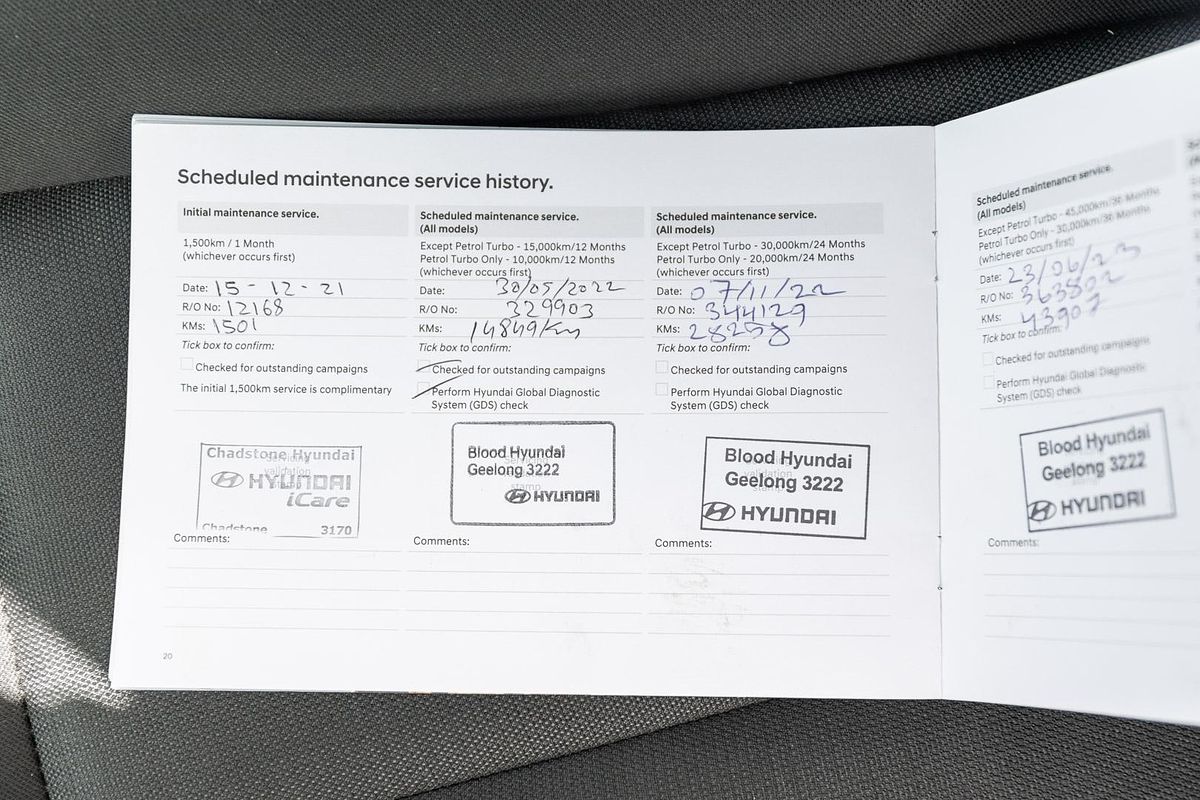 Scheduled maintenance service history.
Initial maintenance service.
1,500km / 1 Month
(whichever occurs first)
Date: 15 - 12 - 21
R/O No: 12168
KMs: 1501
Tick box to confirm:
Checked for outstanding campaigns
The initial 1,500km service is complimentary
Chadstone Hyundai
validation
HYUNDAI
iCare
Chadstone 3170
Comments:
20
Scheduled maintenance service.
(All models)
Except Petrol Turbo - 15,000km/12 Months
Petrol Turbo Only - 10,000km/12 Months
(whichever occurs first)
Date: 30/05/2022
R/O No: 329903
KMs: 14849Km
Tick box to confirm:
Checked for outstanding campaigns
Perform Hyundai Global Diagnostic
System (GDS) check
Blood Hyundai
Geelong 3222
stamp
HYUNDAI
Comments:
Scheduled maintenance service.
(All models)
Except Petrol Turbo - 30,000km/24 Months
Petrol Turbo Only - 20,000km/24 Months
(whichever occurs first)
Date: 07/11/22
R/O No: 344129
KMs: 28258
Tick box to confirm:
Checked for outstanding campaigns
Perform Hyundai Global Diagnostic
System (GDS) check
Blood Hyundai
validation
Geelong 3222
stamp
HYUNDAI
Comments:
Scheduled maintenance service.
(All models)
Except Petrol Turbo - 45,000km/36 Months
Petrol Turbo Only - 30,000km/36 Months
(whichever occurs first)
Date: 23/06/23
R/O No: 363802
KMs: 43907
Tick box to confirm:
Checked for outstanding campaigns
Perform Hyundai Global Diagnostic
System (GDS) check
Blood Hyundai
Geelong 3222
HYUNDAI
Comments: